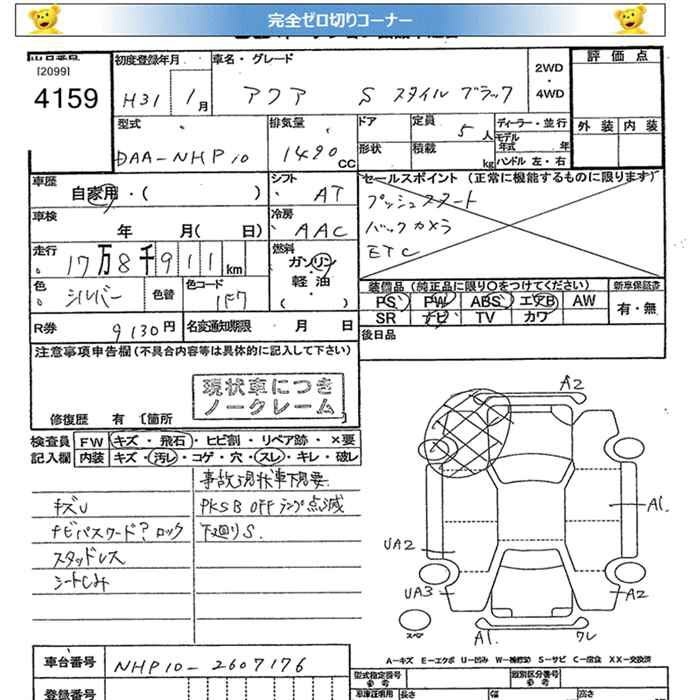 完全ゼロ切りコーナー
[2099]
4159
初度登録年月
H31 1月
車名・グレード
アクア S スタイル ブラック
2WD
・
4WD
評価点
外装 内装
型式
DAA-NHP10
排気量
1490 CC
ドア
形状
定員 5人
積載 kg
ディーラー・並行
モデル年式 年
ハンドル 左・右
車歴
自家用・( )
シフト
AT
セールスポイント(正常に機能するものに限ります)
プッシュスタート
バックカメラ
ETC
車検
年 月( 日)
冷房
AAC
走行
17万8千911km
燃料
ガソリン
・
軽油
・
( )
色
シルバー
色替
色コード
1F7
装備品(純正品に限り○をつけてください)
新車保証書
PS PW ABS エアB AW
SR ナビ TV カワ
有・無
R券
9130円
名変通知期限 月 日
後日品
注意事項申告欄(不具合内容等は具体的に記入して下さい)
現状車につき
ノークレーム
修復歴 有 〔箇所
検査員
記入欄
FW キズ・飛石・ヒビ割・リペア跡・×要
内装 キズ・汚レ・コゲ・穴・スレ・キレ・破レ
キズU
ナビパスワード?ロック
スタッドレス
シートしみ
PKSB OFF ランプ点滅
下廻りS.
A2
A1.
UA2
UA3
A2
スペア
A1.
ワレ
A-キズ E-エクボ U-凹み W-補修跡 S-サビ C-腐食 XX-交換済
車台番号
NHP10-2607176
登録番号
型式指定番号
参考
類別区分番号
参考
車庫証明用
長さ
幅
高さ